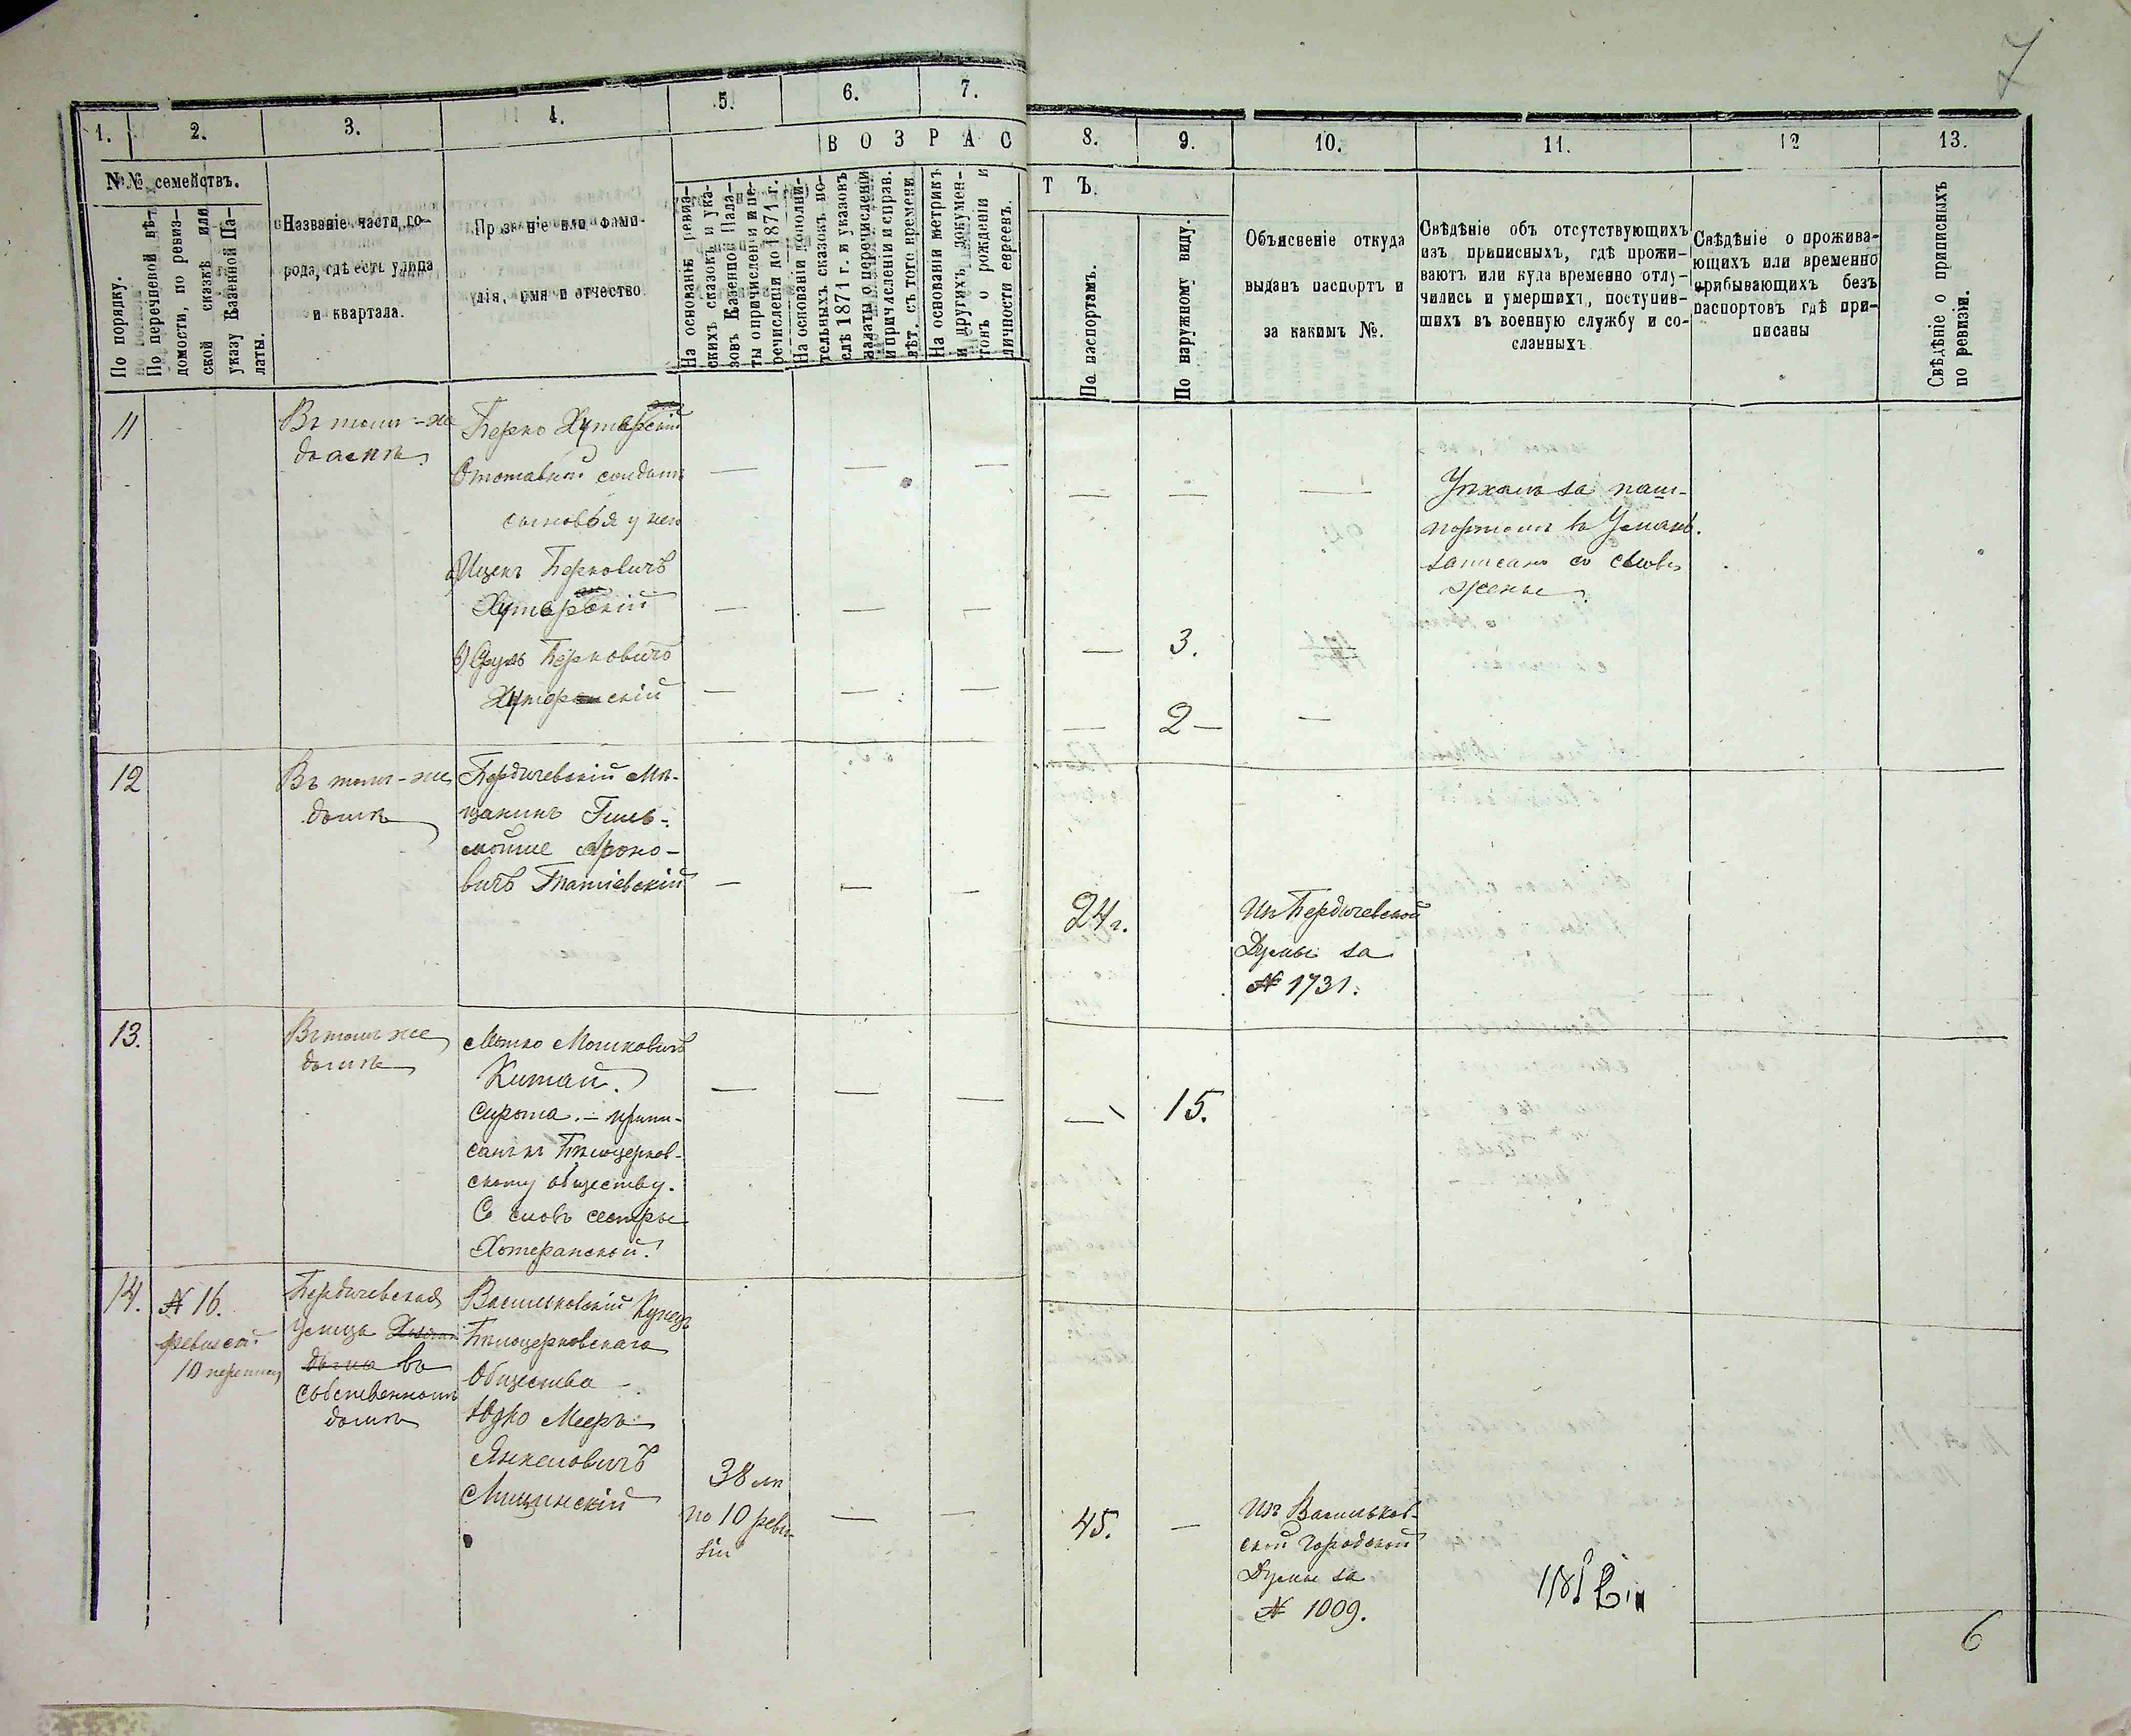 7
1. 2. 3. 4. 5. 6. 7. 8. 9. 10. 11. 12 13.
В О З Р А С Т Ъ.
№№ семействъ.
По порядку.
По перечневой вѣ-
домости, по ревиз-
ской сказкѣ или
указу Казенной Па-
латы.
Названіе части го-
рода, гдѣ есть улица
и квартала.
Прозваніе или фами-
лія, имя и отчество
На основаніи ревиз-
скихъ сказокъ и ука-
зовъ Казенной Пала-
ты о причисленіи и пе-
речисленіи до 1871 г.
На основаніи дополни-
тельныхъ сказокъ по-
слѣ 1871 г. и указовъ
палаты о перечисленіи
и причисленіи и справ.
вѣт. съ того времени.
На основаніи метрикъ
и другихъ докумен-
товъ о рожденіи и
личности евреевъ.
По паспортамъ.
По наружному виду.
Объясненіе откуда
выданъ паспортъ и
за какимъ №.
Свѣдѣніе объ отсутствующихъ
изъ приписныхъ, гдѣ прожи-
ваютъ или куда временно отлу-
чились и умершихъ, поступив-
шихъ въ военную службу и со-
сланныхъ
Свѣдѣніе о прожива-
ющихъ или временно
прибывающихъ безъ
паспортовъ гдѣ при-
писаны
Свѣдѣніе о приписныхъ
по ревизіи.
11
Въ томъ-же
домѣ
Берко
Отставной солдатъ
сыновья у него
а) Ицекъ Берковичъ
в) Сруль Берковичъ
Хуторанскій
— — — — — —
Уѣхалъ за паш-
портомъ въ Умань.
записанъ со словъ
жены
— — — — 3.
— — — — 2 — —
12
Въ томъ-же
домѣ
Бердичевскій мѣ-
щанинъ Гиль-
мойше Ароно-
вичъ
— — —
24 г.
Изъ Бердичевской
Думы за
№ 1731.
13.
Въ томъ же
домѣ
Мошковичъ
Китай.
Сирота. — припи-
санъ къ Бѣлоцерков-
скому обществу.
Со словъ сестры
Хотеранской.
— — — — 15.
14.
№ 16.
ревизской
10 переписи
Бердичевская
улица
дома въ
собственномъ
домѣ
Васильковскій Купецъ
Бѣлоцерковскаго
Общества
Юдко Мееръ
Янкелевичъ
38 лѣ
по 10 реви-
зіи
— — 45. —
Изъ Васильков-
ской Городской
Думы за
№ 1009.
6